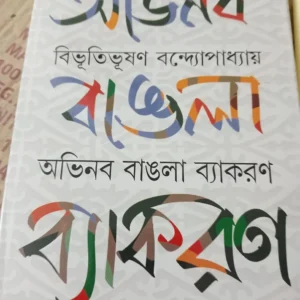 অভিনব
বিভূতিভূষণ বন্দ্যোপাধ্যায়
বাঙলা
অভিনব বাঙলা ব্যাকরণ
ব্যাকরণ